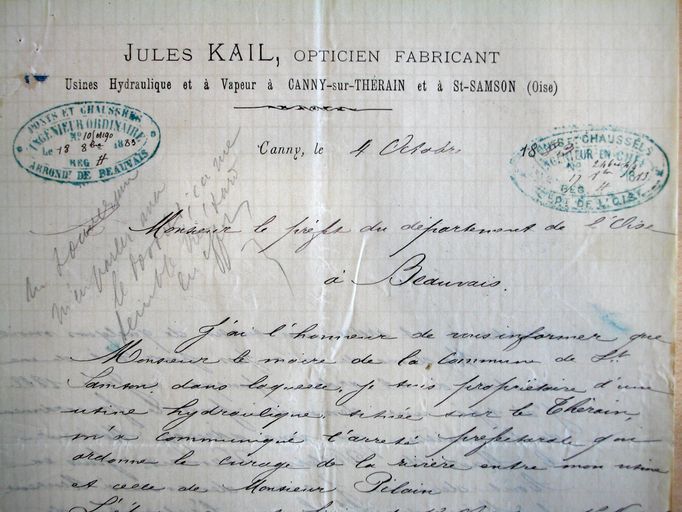 JULES KAIL, OPTICIEN FABRICANT
Usines Hydraulique et à Vapeur à CANNY-sur-THÉRAIN et à St-SAMSON (Oise)
PONTS ET CHAUSSÉES
INGÉNIEUR ORDINAIRE
Le 18 8bre 1883
REG H
ARROND<sup>t</sup> DE BEAUVAIS
Canny, le 4 Octobre 18
PONTS ET CHAUSSÉES
INGÉNIEUR EN CHEF
REG H
DEPt DE L'OISE
Monsieur le préfet du département de l'Oise
à Beauvais.
J'ai l'honneur de vous informer que
Monsieur le maire de la commune de St
Samson dans laquelle, je suis propriétaire d'une
usine hydraulique, située sur le Thérain,
m'a communiqué l'arrêté préfectoral qui
ordonne le curage de la rivière entre mon usine
et celle de Monsieur Pilain